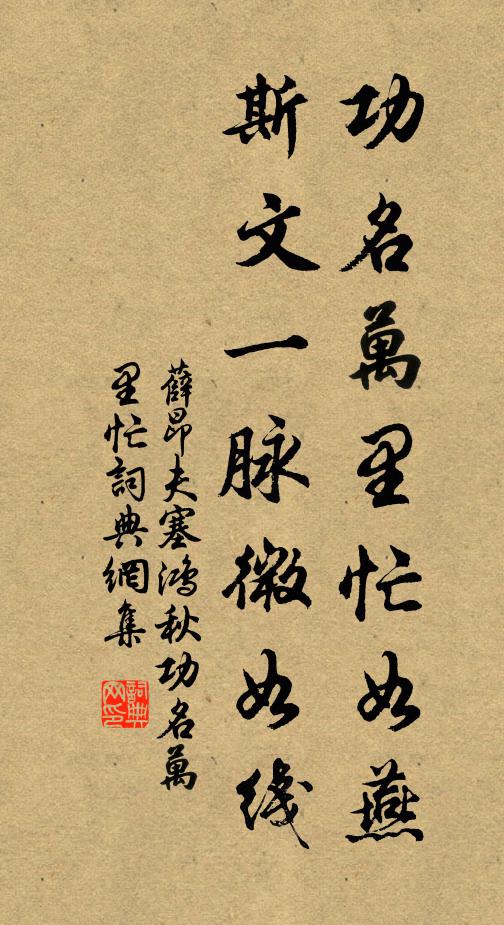 功名萬里忙如燕
斯文一脉微如綫
薛昂夫塞鴻秋功名萬
里忙詞典網集
詞典
网印